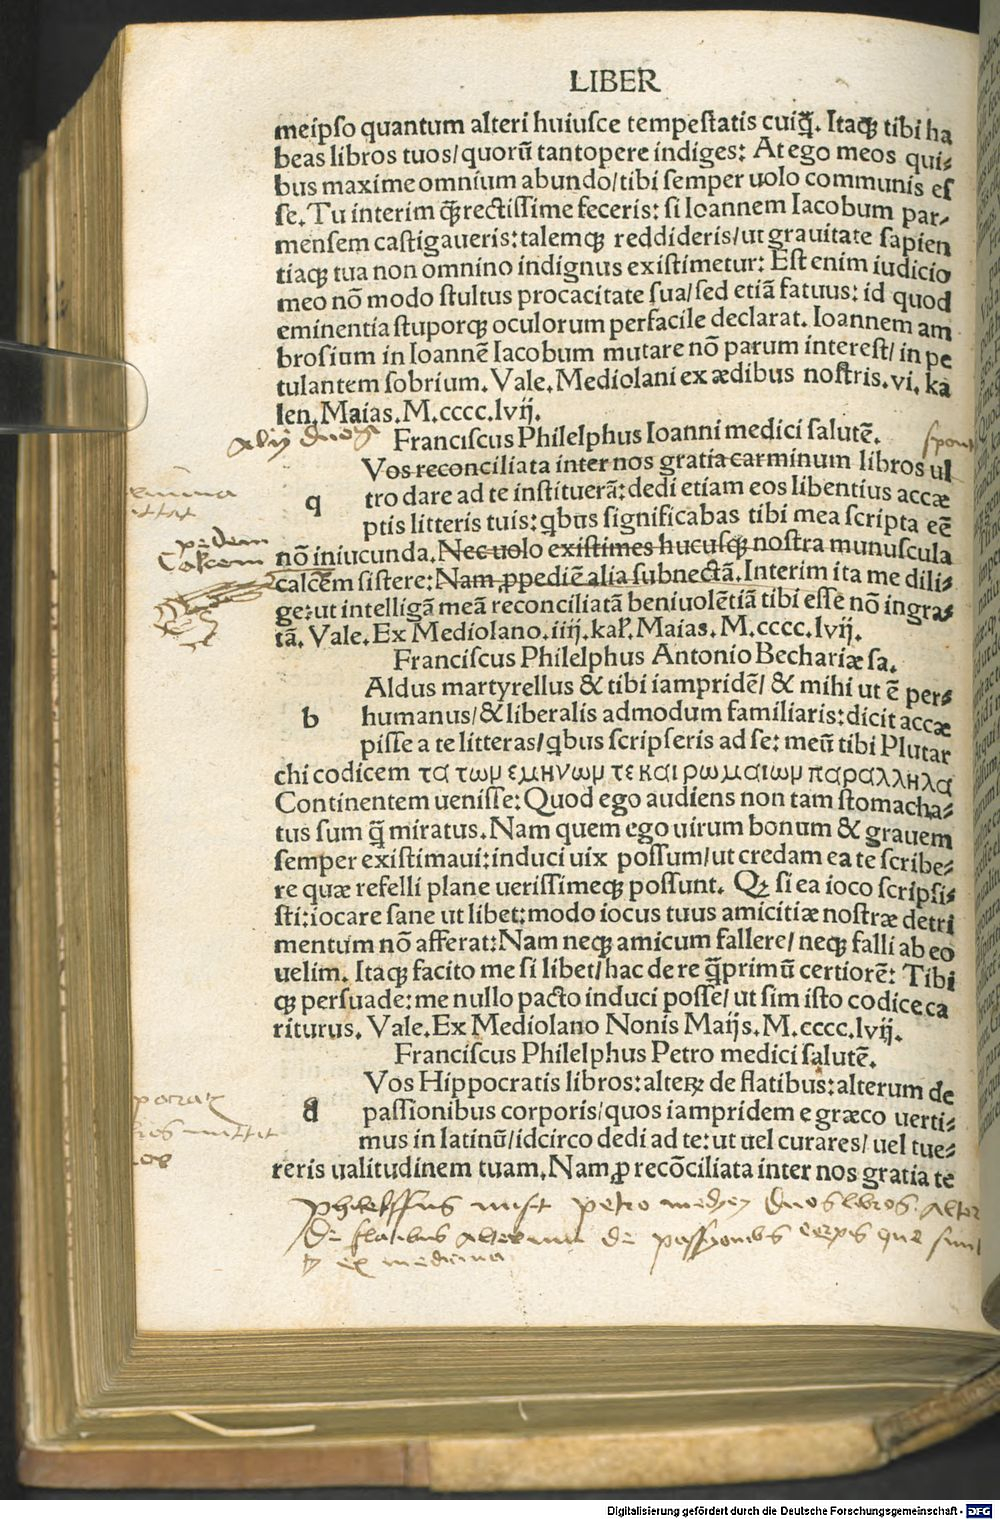 LIBER
meipſo quantum alteri huiuſce tempeſtatis cuiq̃. Itaqꝫ tibi ha
beas libros tuos/quorũ tantopere indiges: At ego meos qui⸗
bus maxime omnium abundo/tibi ſemper uolo communis eſ
ſe. Tu interim q̃rectiſſime feceris: ſi Ioannem Iacobum par⸗
menſem caſtigaueris: talemqꝫ reddideris/ut grauitate ſapien
tiaqꝫ tua non omnino indignus exiſtimetur: Eſt enim iudicio
meo nõ modo ſtultus procacitate ſua/ſed etiã fatuus: id quod
eminentia ſtuporqꝫ oculorum perfacile declarat. Ioannem am
broſium in Ioannẽ Iacobum mutare nõ parum intereſt/ in pe
tulantem ſobrium. Vale. Mediolani ex ædibus noſtris. vi. ka
len. Maias. M.cccc.lvij.
Franciſcus Philelphus Ioanni medici ſalutẽ.
Vos reconciliata inter nos gratia carminum libros ul
q tro dare ad te inſtituerã: dedi etiam eos libentius accæ
ptis litteris tuis: qbus ſignificabas tibi mea ſcripta eẽ
nõ iniucunda. Nec uolo exiſtimes hucuſqꝫ noſtra munuſcula
pedem
Calcem
calcẽm ſiſtere: Nam ꝓpediẽ alia ſubnectã. Interim ita me dili⸗
ge: ut intelligã meã reconciliatã beniuolẽtiã tibi eſſe nõ ingra⸗
tã. Vale. Ex Mediolano. iiij. kaꝉ. Maias. M.cccc.lvij.
Franciſcus Philelphus Antonio Bechariæ ſa.
Aldus martyrellus & tibi iampridẽ/ & mihi ut ẽ per⸗
b humanus/ & liberalis admodum familiaris: dicit accæ
piſſe a te litteras/ qbus ſcripſeris ad ſe: meũ tibi Plutar
chi codicem τα τωμ εμηνωμ τε και ρωμαιωμ παραλληλα
Continentem ueniſſe: Quod ego audiens non tam ſtomacha⸗
tus ſum q̃ miratus. Nam quem ego uirum bonum & grauem
ſemper exiſtimaui: induci uix poſſum/ut credam ea te ſcribe⸗
re quæ refelli plane ueriſſimeqꝫ poſſunt. Qꝫ ſi ea ioco ſcripſi⸗
ſti: iocare ſane ut libet: modo iocus tuus amicitiæ noſtræ detri
mentum nõ afferat: Nam neqꝫ amicum fallere/ neqꝫ falli ab eo
uelim. Itaqꝫ facito me ſi libet/ hac de re q̃primũ certiorẽ: Tibi
qꝫ perſuade: me nullo pacto induci poſſe/ ut ſim iſto codice ca
riturus. Vale. Ex Mediolano Nonis Maijs. M.cccc.lvij.
Franciſcus Philelphus Petro medici ſalutẽ.
Vos Hippocratis libros: alteꝝ de flatibus: alterum de
d paſſionibus corporis/ quos iampridem e græco uerti⸗
mus in latinũ/ idcirco dedi ad te: ut uel curares/ uel tue⸗
reris ualitudinem tuam. Nam ꝓ recõciliata inter nos gratia te
philelffus misit petro duos libros. alter
De flatibus alterum de
ex medicina
Digitalisierung gefördert durch die Deutsche Forschungsgemeinschaft - DFG